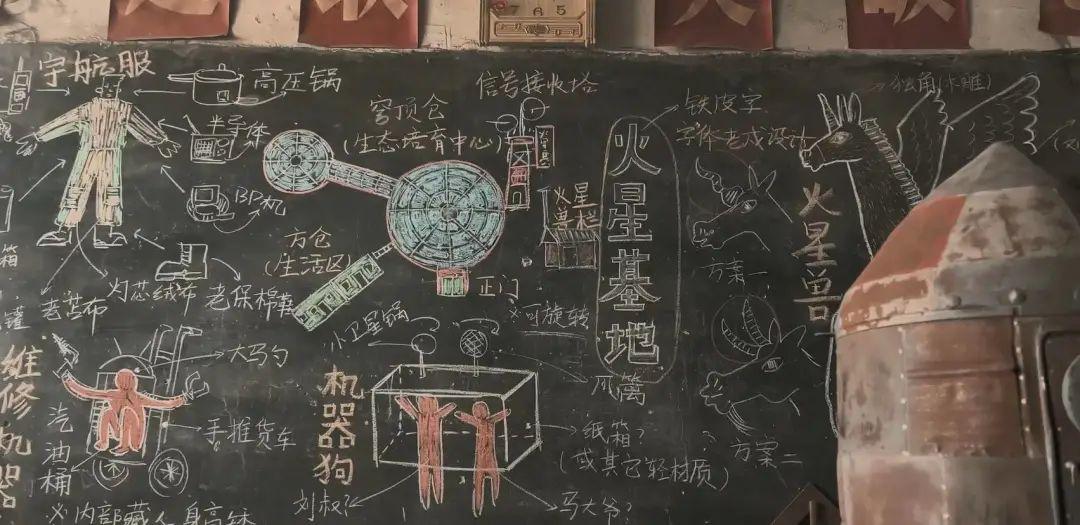 7 6 5
宇航服
高压锅
半导体
BP机
老棉鞋
灯芯绒布
老苫布
箱
罐
穹顶仓
(生态培育中心)
信号接收塔
方仓
(生活区)
正门
火星
兽栏
火星基地
铁皮字
字体老成设计
独角(木雕)
火星兽
方案一
方案二
维修机器
大马勺
手推货车
汽油桶
机器狗
小卫星锅
※可旋转
爪篱
纸箱?
(或其它轻材质)
刘叔?
马大爷?